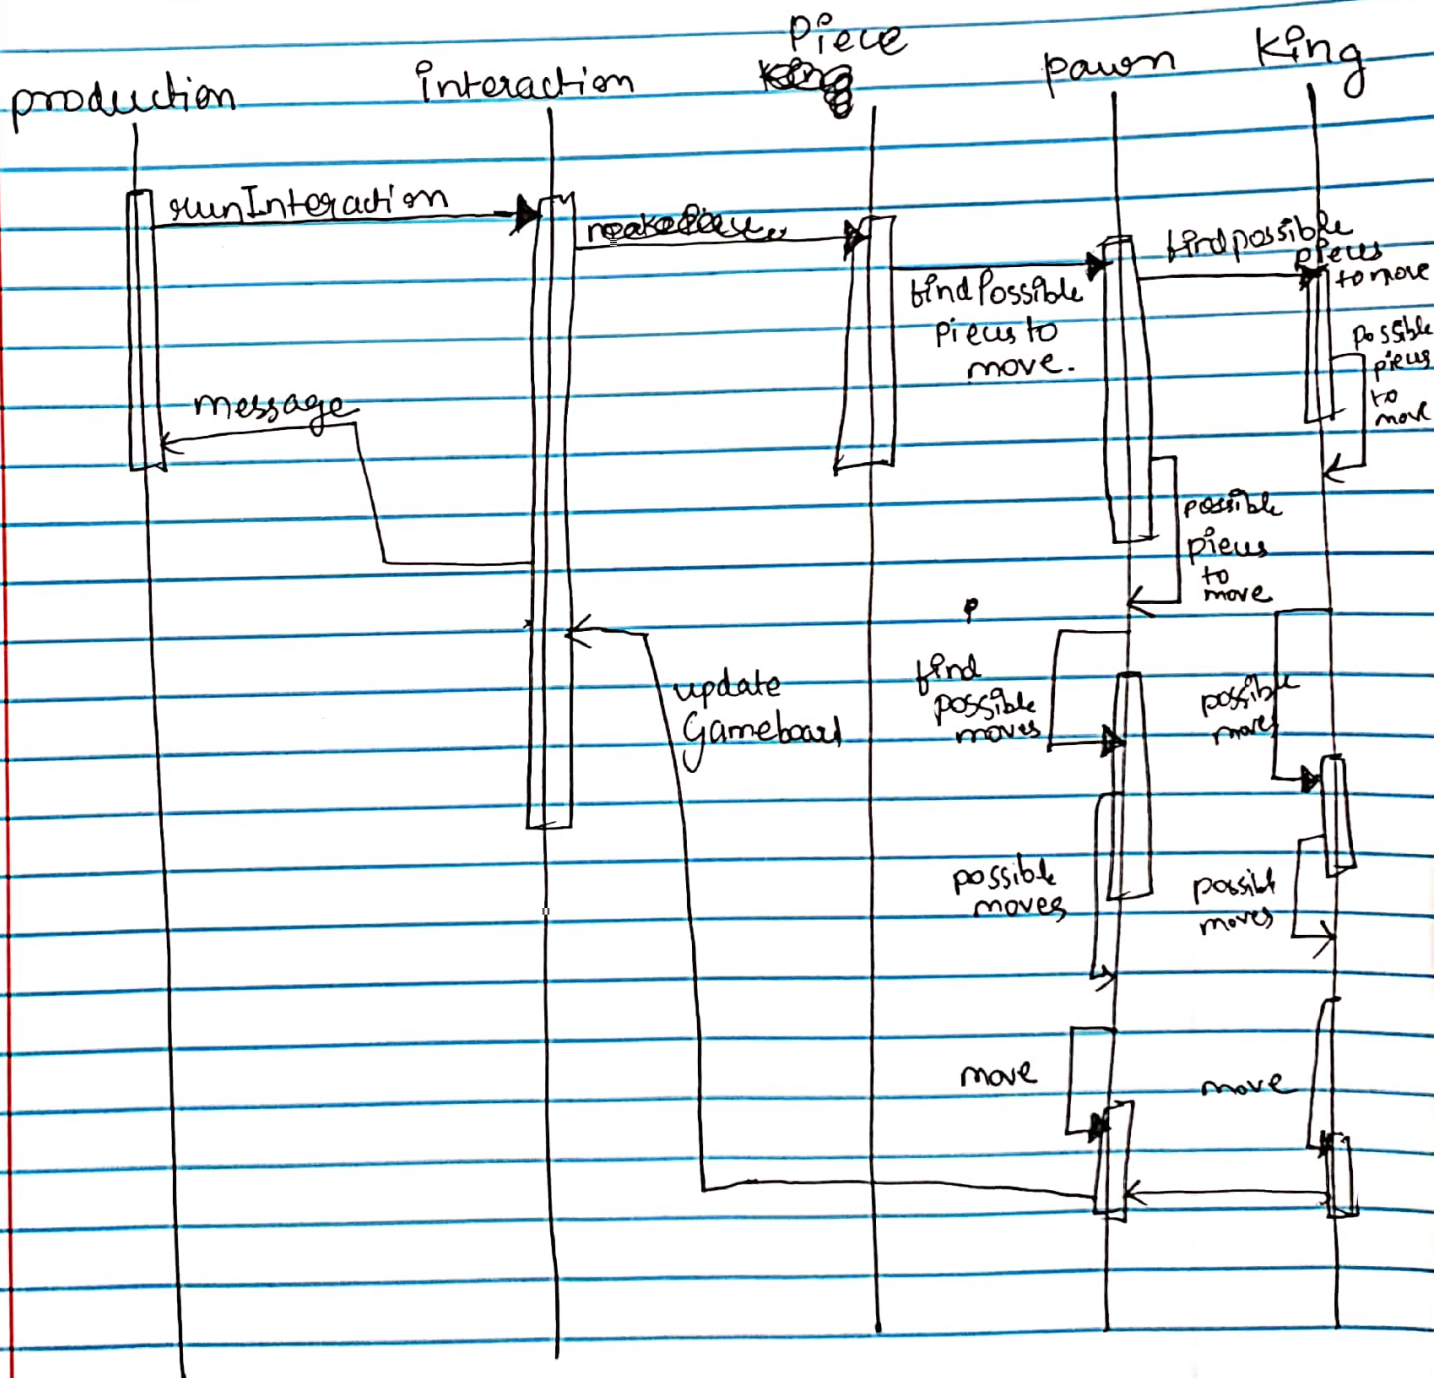 Piece
production
interaction
pawn
King
runInteraction
makePiece
find possible
pieces
to move
findPossible
pieces to
move.
possible
pieces
to
move
message
possible
pieces
to
move
find
possible
moves
update
Gameboard
possible
moves
possible
moves
possible
moves
move
move